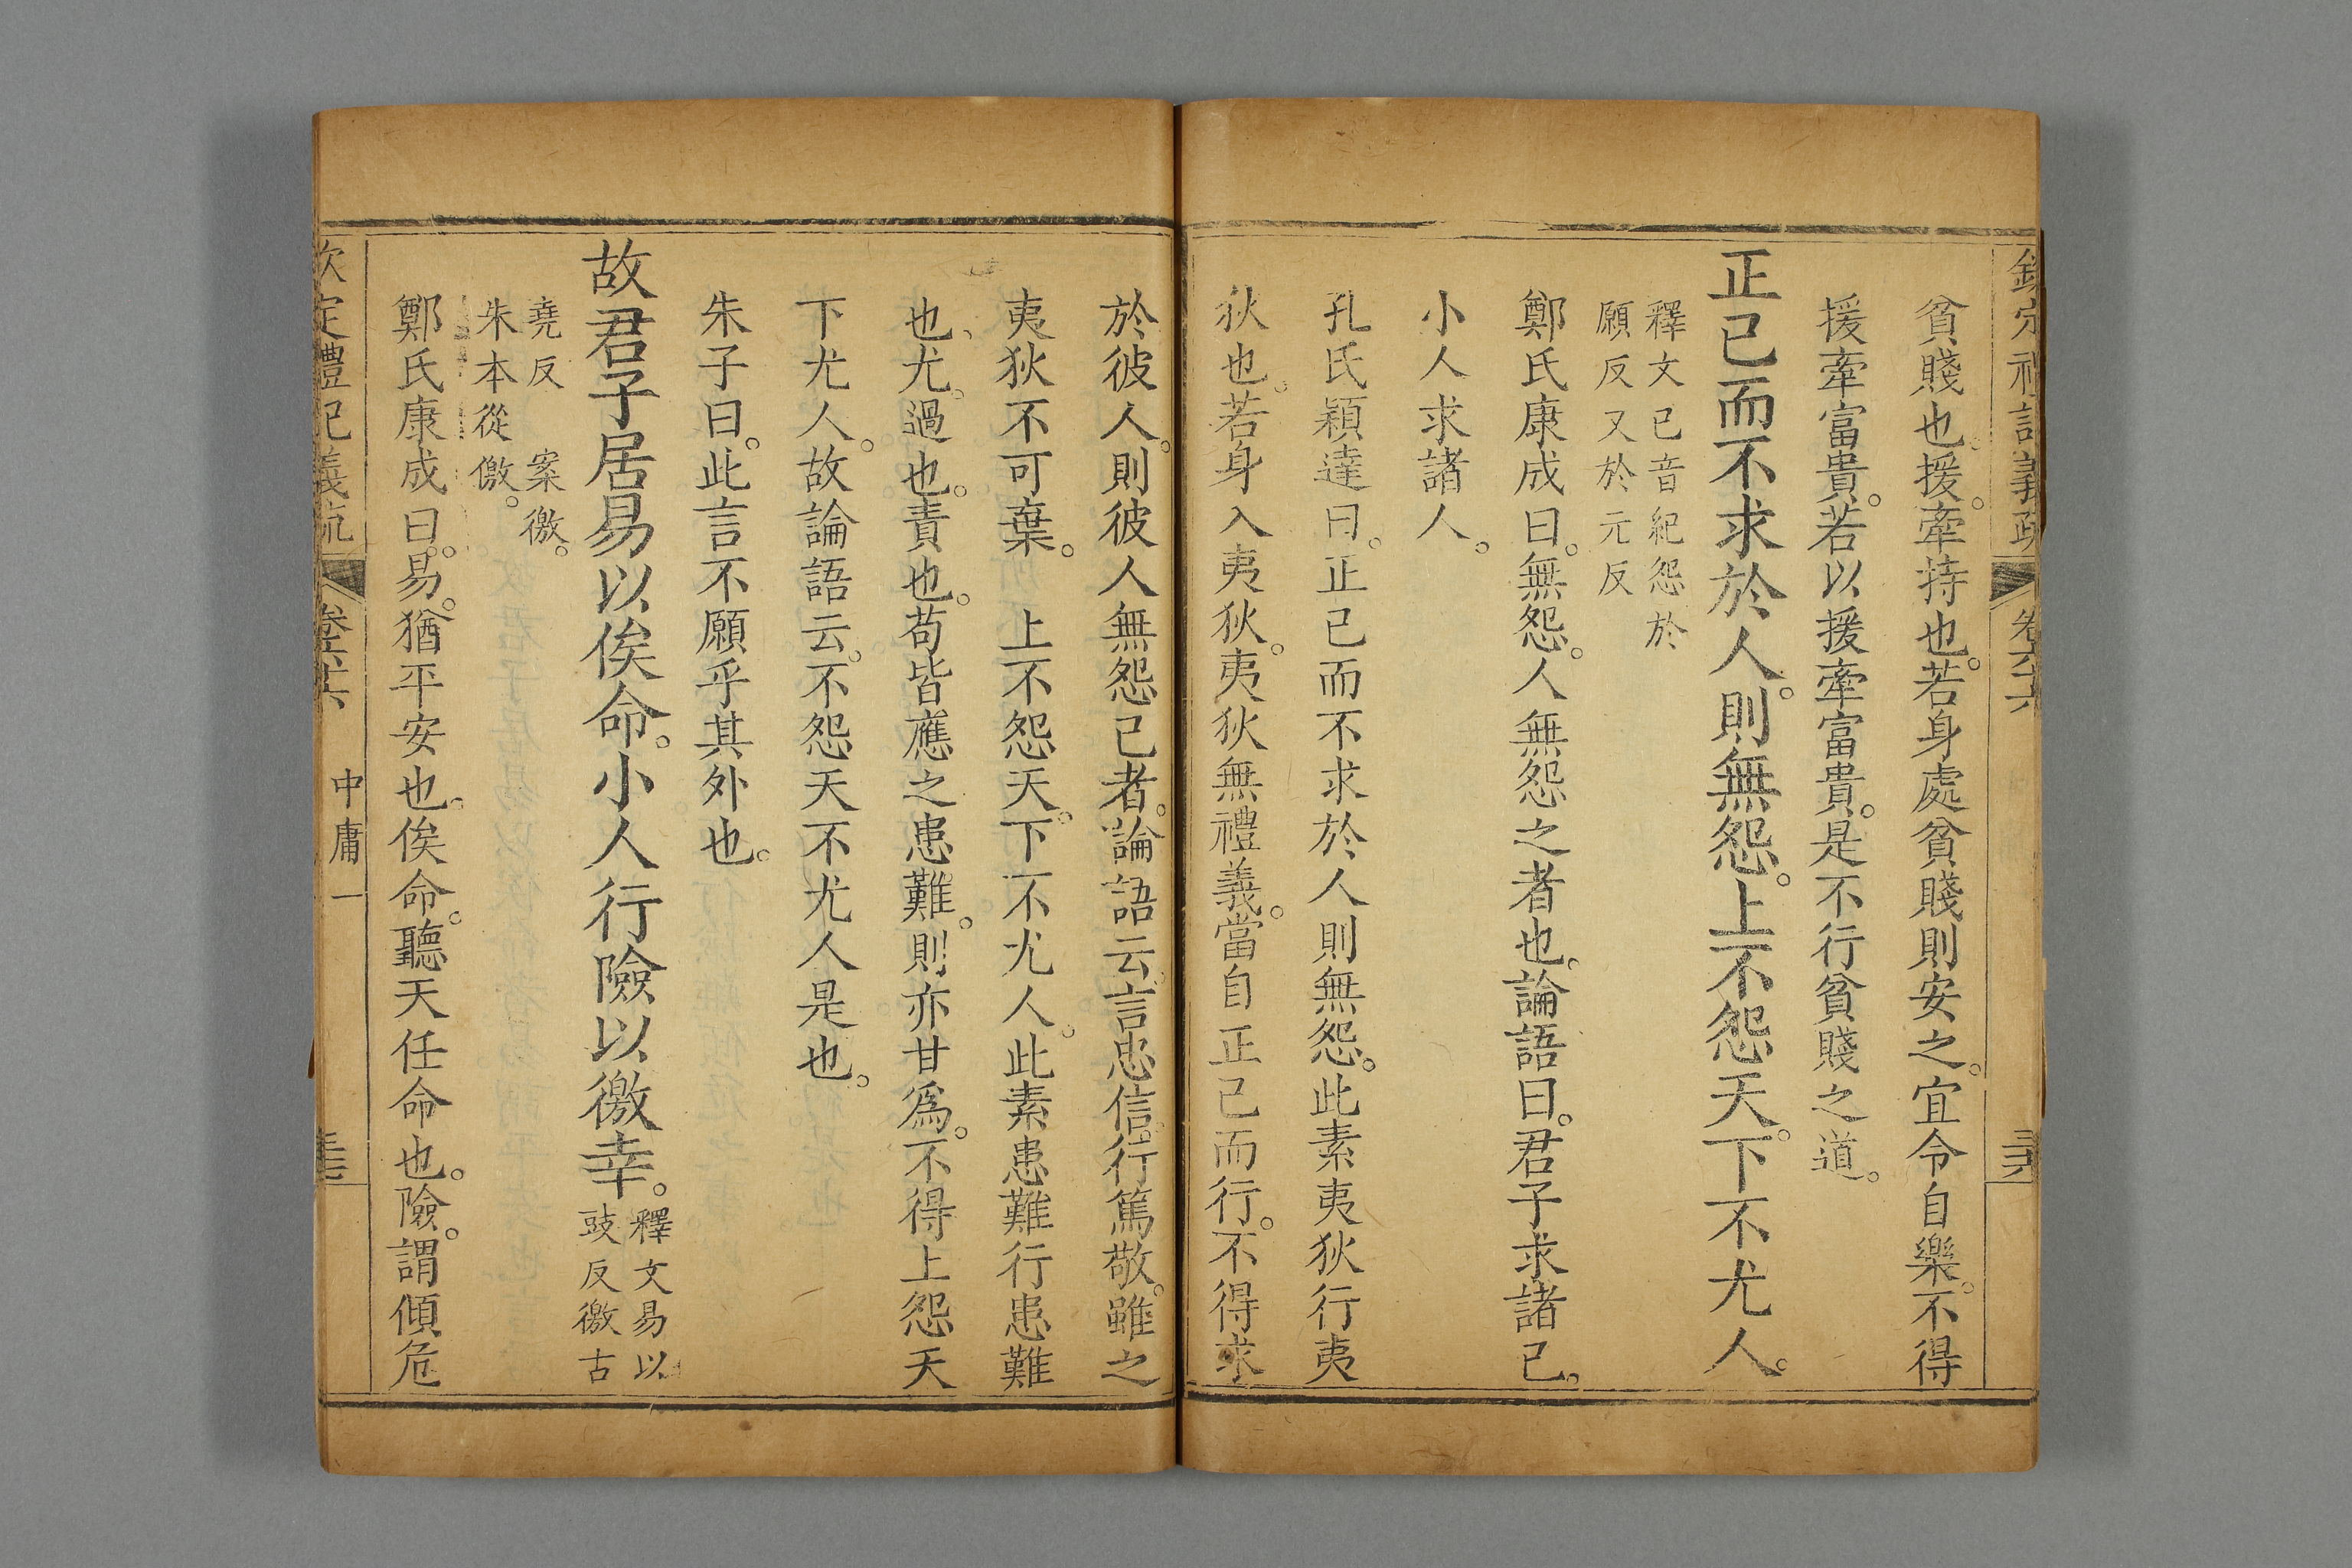 欽定禮記義疏 卷六十六
貧賤也。援。牽持也。若身處貧賤則安之。宜令自樂。不得
援牽富貴。若以援牽富貴。是不行貧賤之道。
正已而不求於人。則無怨。上不怨天。下不尤人。
釋文已音紀怨於
願反又於元反
鄭氏康成曰。無怨。人無怨之者也。論語曰。君子求諸己。
小人求諸人。
孔氏穎達曰。正已而不求於人則無怨。此素夷狄行夷
狄也。若身入夷狄。夷狄無禮義。當自正己而行。不得求
於彼人。則彼人無怨己者。論語云。言忠信。行篤敬。雖之
夷狄不可棄。 上不怨天。下不尤人。此素患難行患難
也。尤。過也。責也。苟皆應之患難。則亦甘為。不得上怨天
下尤人。故論語云。不怨天不尤人是也。
朱子曰。此言不願乎其外也。
故君子居易以俟命。小人行險以徼幸。
釋文易以
豉反徼古
堯反 案徼。
朱本從儌。
鄭氏康成曰。易。猶平安也。俟命。聽天任命也。險。謂傾危
欽定禮記義疏 卷六十六 中庸一